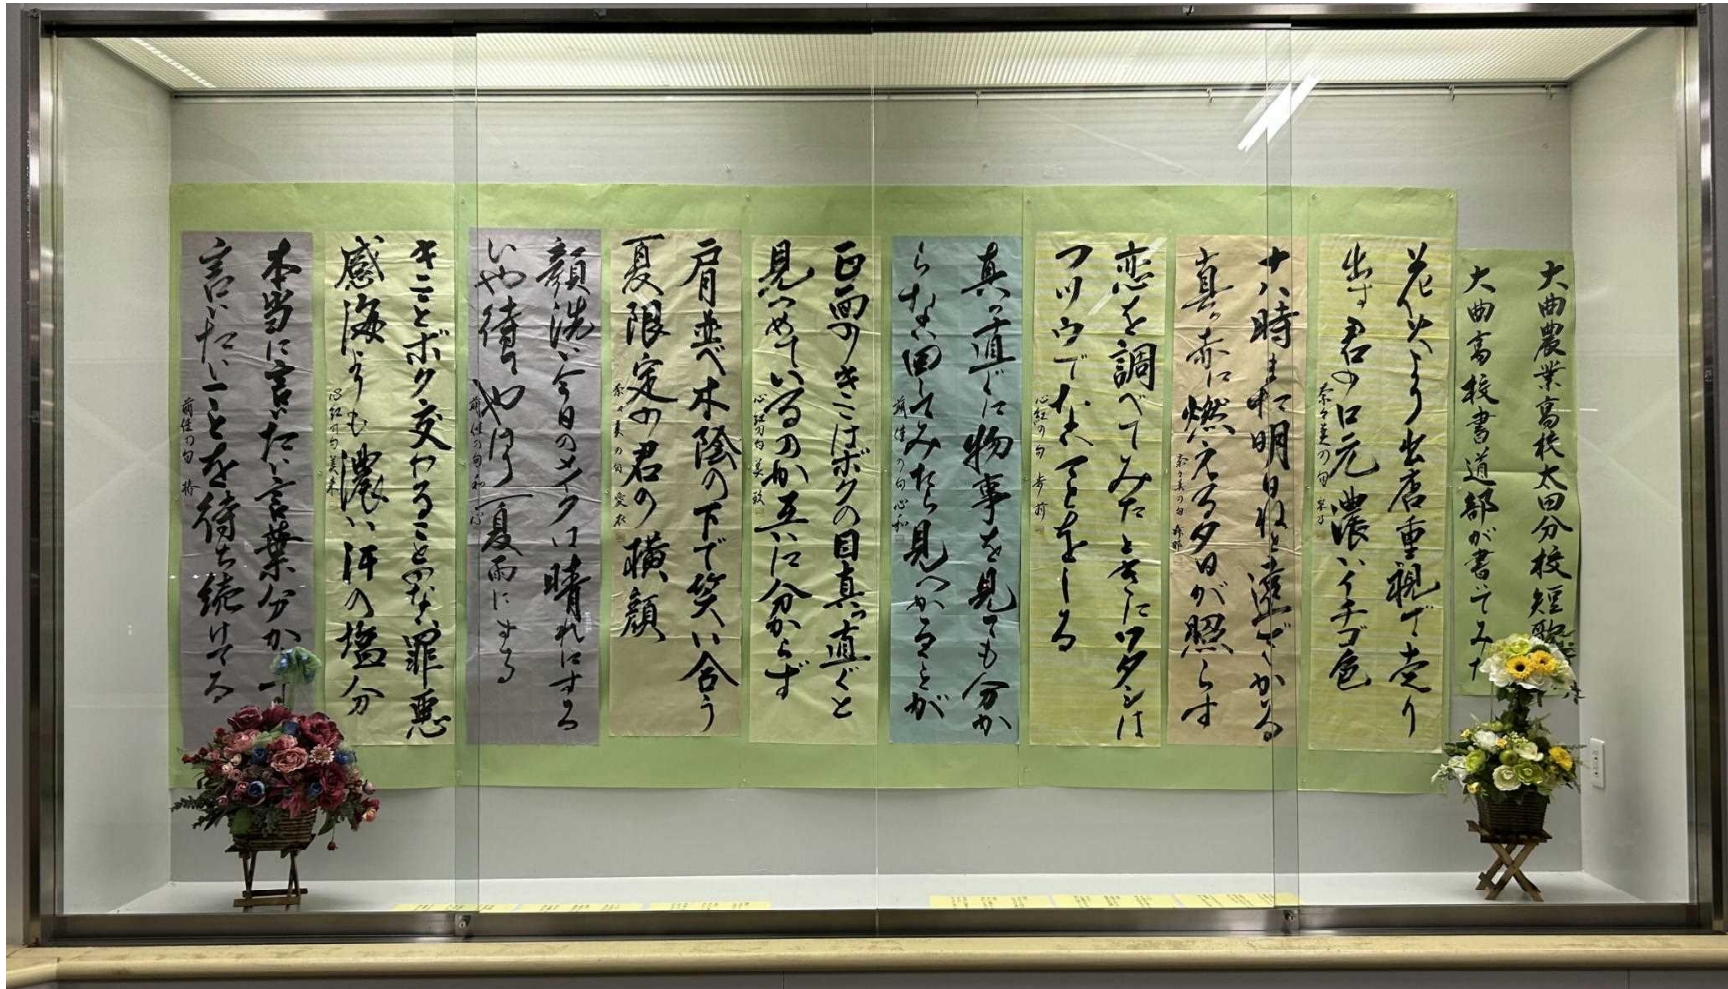 大曲農業高校太田分校短歌
大曲高校書道部が書いてみた
花火より出店重視で走り
出す君の口元濃いイチゴ色
奈々美の句
十八時まだ明日ねと遠ざかる
真っ赤に燃える夕日が照らす
奈々美の句
恋を調べてみたときにワタシは
フツウでないことをしる
心紅の句
真っ直ぐに物事を見ても分か
らない回してみたら見へかることが
萌佳の句 心和
正面のきこはボクの目真っ直ぐと
見つめているのか互いに分からず
心紅の句
肩並べ木陰の下で笑い合う
夏限定の君の横顔
奈々美の句 愛衣
顔洗い今日のメイクは晴れにする
いや待てやはり夏雨にする
萌佳の句
きことボク交わることない罪悪
感海よりも濃い汗の塩分
心紅の句
本当に言いたい言葉分か
言いたいことを待ち続けてる
萌佳の句 椿